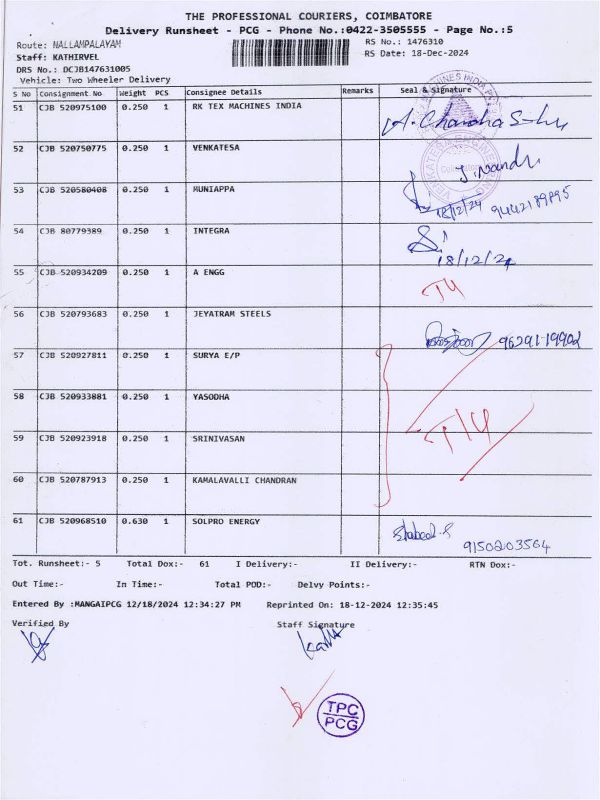 THE PROFESSIONAL COURIERS, COIMBATORE
Delivery Runsheet - PCG - Phone No.:0422-3505555 - Page No.:5
Route: NALLAMPALAYAM
RS No.: 1476310
Staff: KATHIRVEL
RS Date: 18-Dec-2024
DRS No.: DCJB147631005
Vehicle: Two Wheeler Delivery
S No Consignment No Weight PCS Consignee Details Remarks Seal & Signature
51 CJB 520975100 0.250 1 RK TEX MACHINES INDIA
52 CJB 520750775 0.250 1 VENKATESA
J. Nandhu
53 CJB 520580408 0.250 1 MUNIAPPA
18/12/24 9442189895
54 CJB 80779389 0.250 1 INTEGRA
18/12/24
55 CJB 520934209 0.250 1 A ENGG
56 CJB 520793683 0.250 1 JEYATRAM STEELS
57 CJB 520927811 0.250 1 SURYA E/P
58 CJB 520933881 0.250 1 YASODHA
59 CJB 520923918 0.250 1 SRINIVASAN
60 CJB 520787913 0.250 1 KAMALAVALLI CHANDRAN
61 CJB 520968510 0.630 1 SOLPRO ENERGY
9150203564
Tot. Runsheet:- 5 Total Dox:- 61 I Delivery:- II Delivery:- RTN Dox:-
Out Time:- In Time:- Total POD:- Delvy Points:-
Entered By :MANGAIPCG 12/18/2024 12:34:27 PM Reprinted On: 18-12-2024 12:35:45
Verified By Staff Signature
TPC
PCG